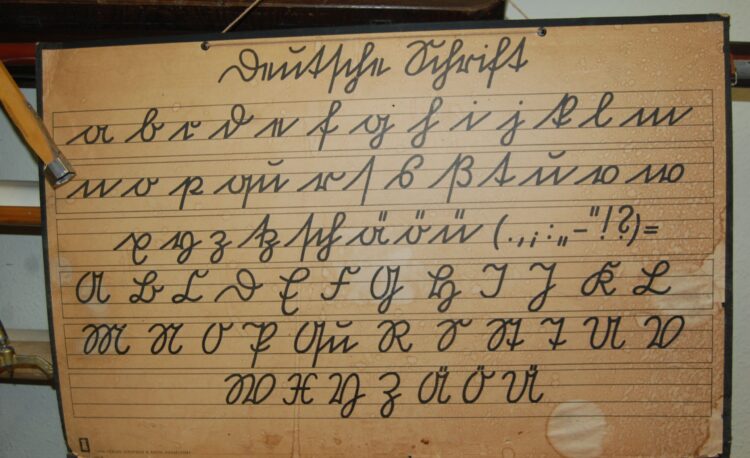 Deutsche Schrift
a b c d e f g h i j k l m
n o p qu r ſ s ß t u v w
x y z tz ſch ä ö ü (.,;:„-"!?)=
A B C D E F G H I J K L
M N O P Qu R S St T U V
W X Y Z Ä Ö Ü